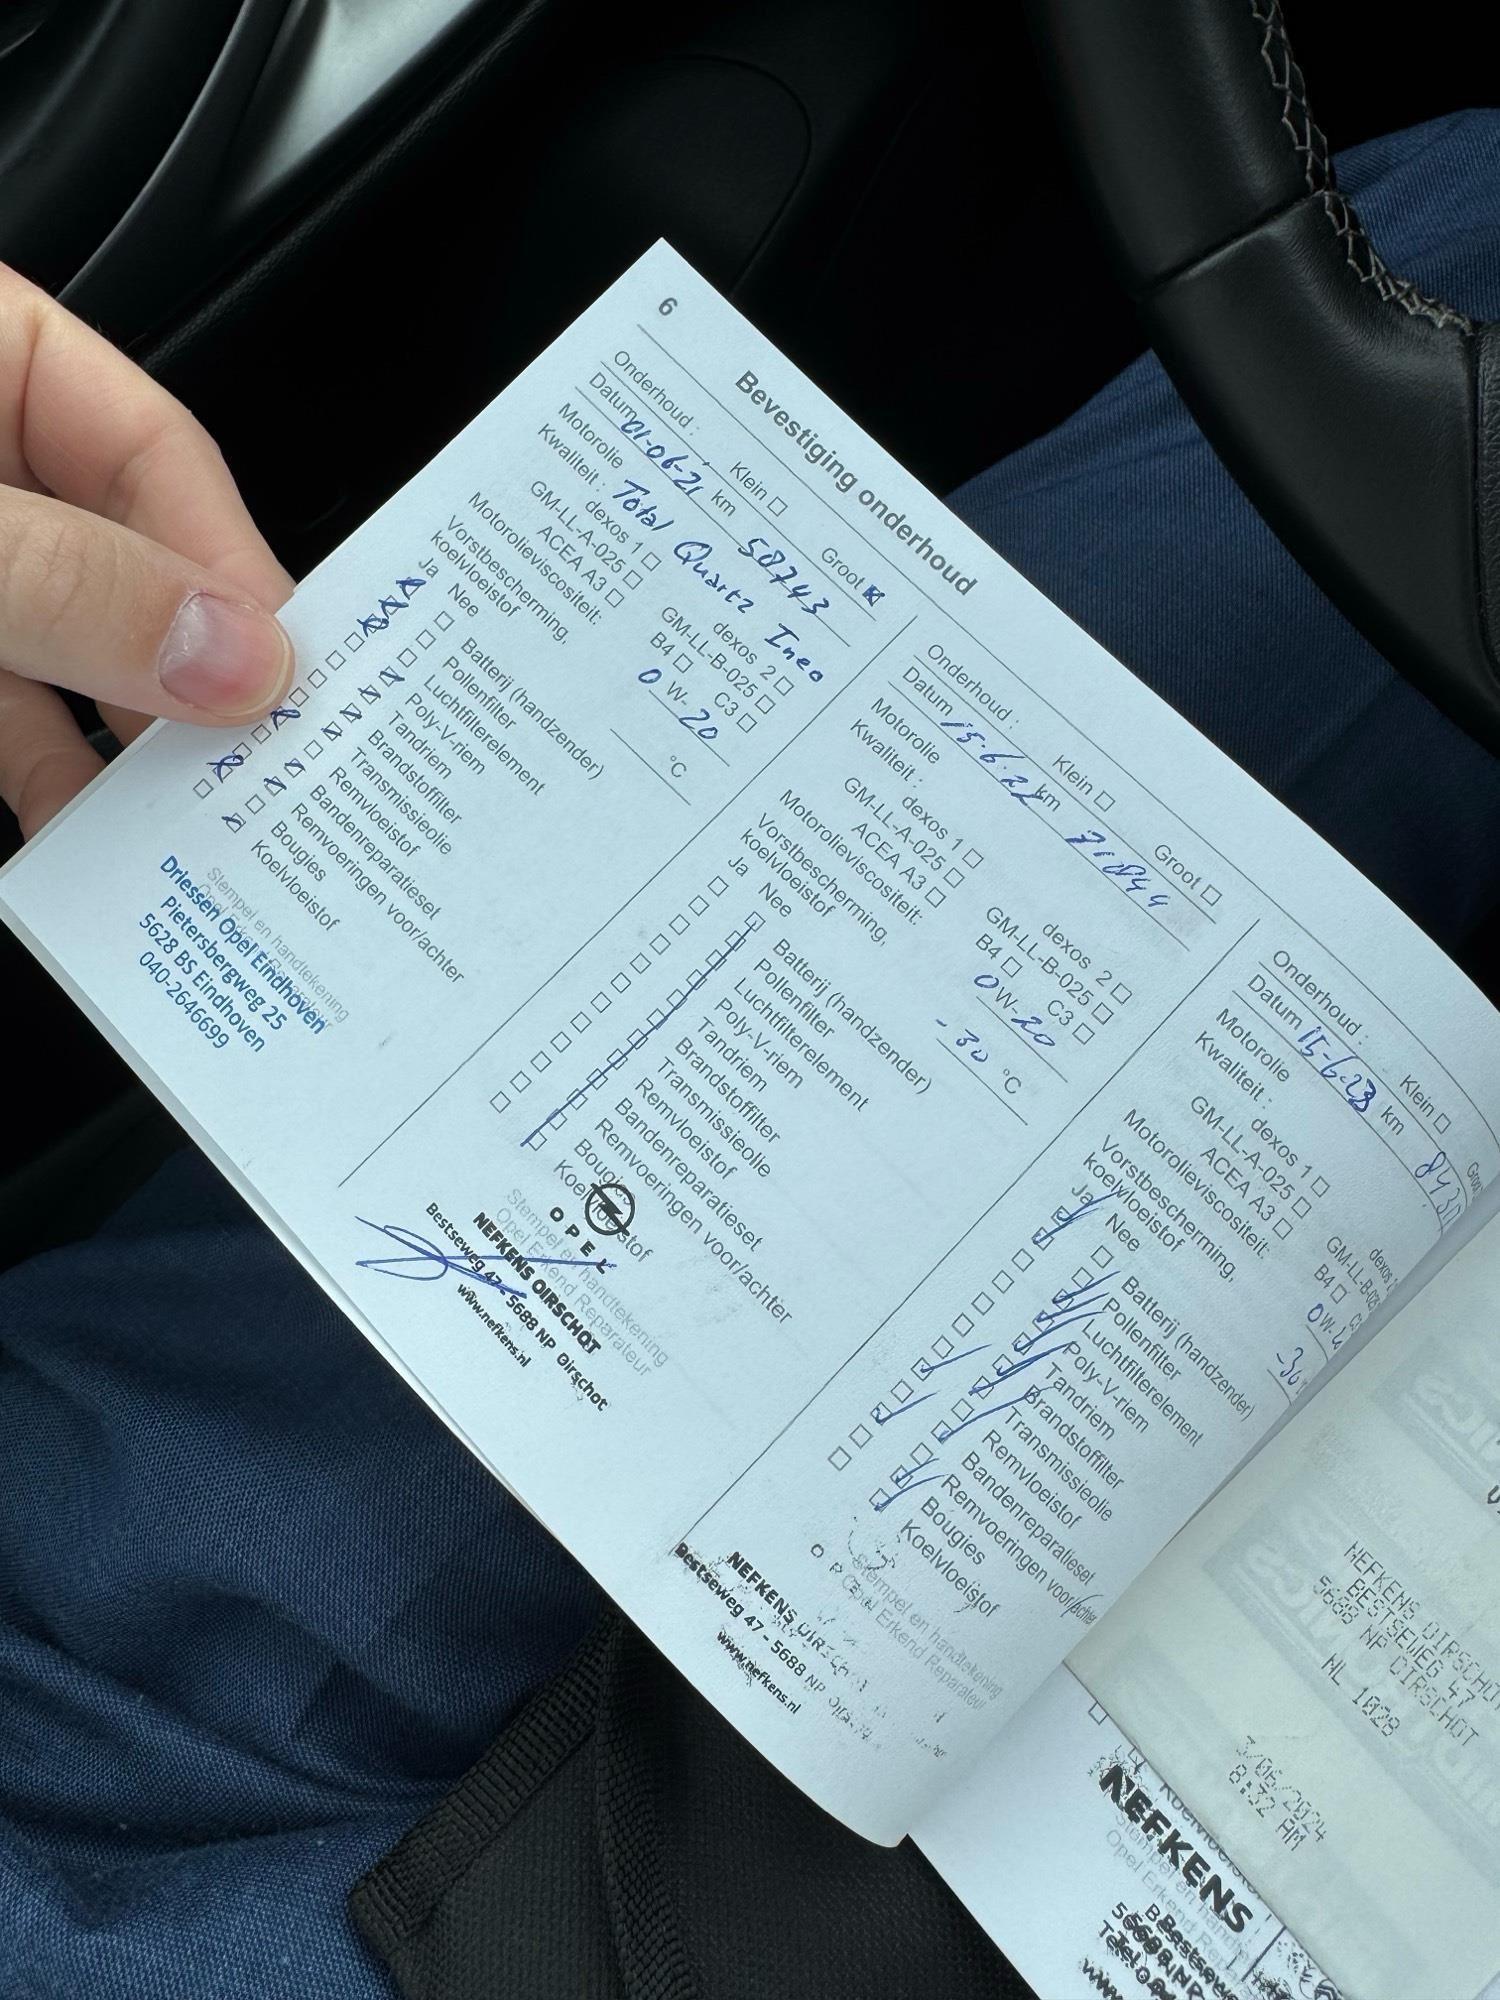 6
Bevestiging onderhoud
Onderhoud : Klein Groot
Datum 01-06-21 km 58743
Motorolie Total Quartz Ineo
Kwaliteit : dexos 1 dexos 2
GM-LL-A-025 GM-LL-B-025
ACEA A3 B4 C3
Motorolieviscositeit: 0 W- 20
Vorstbescherming,
koelvloeistof °C
Ja Nee
Batterij (handzender)
Pollenfilter
Luchtfilterelement
Poly-V-riem
Tandriem
Brandstoffilter
Transmissieolie
Remvloeistof
Bandenreparatieset
Remvoeringen voor/achter
Bougies
Koelvloeistof
Stempel en handtekening
Driessen Opel Eindhoven
Pietersbergweg 25
5628 BS Eindhoven
040-2646699
Onderhoud : Klein Groot
Datum 15-6-22 km 71844
Motorolie
Kwaliteit : dexos 1 dexos 2
GM-LL-A-025 GM-LL-B-025
ACEA A3 B4 C3
Motorolieviscositeit: 0 W- 20
Vorstbescherming,
koelvloeistof -30 °C
Ja Nee
Batterij (handzender)
Pollenfilter
Luchtfilterelement
Poly-V-riem
Tandriem
Brandstoffilter
Transmissieolie
Remvloeistof
Bandenreparatieset
Remvoeringen voor/achter
Bougies
Koelvloeistof
Stempel en handtekening
Opel Erkend Reparateur
OPEL
NEFKENS OIRSCHOT
Bestseweg 47 - 5688 NP Oirschot
www.nefkens.nl
Onderhoud : Klein Groot
Datum 15-6-23 km 8430
Motorolie
Kwaliteit : dexos 1 dexos
GM-LL-A-025 GM-LL-B-025
ACEA A3 B4 C3
Motorolieviscositeit: 0 W-
Vorstbescherming,
koelvloeistof -30
Ja Nee
Batterij (handzender)
Pollenfilter
Luchtfilterelement
Poly-V-riem
Tandriem
Brandstoffilter
Transmissieolie
Remvloeistof
Bandenreparatieset
Remvoeringen voor/achter
Bougies
Koelvloeistof
Stempel en handtekening
Opel Erkend Reparateur
OPEL
NEFKENS OIRSCHOT
Bestseweg 47 - 5688 NP
www.nefkens.nl
NEFKENS OIRSCHOT
BESTSEWEG 47
5688 NP OIRSCHOT
NL 1028
3/06/2024
8:32 AM
NEFKENS